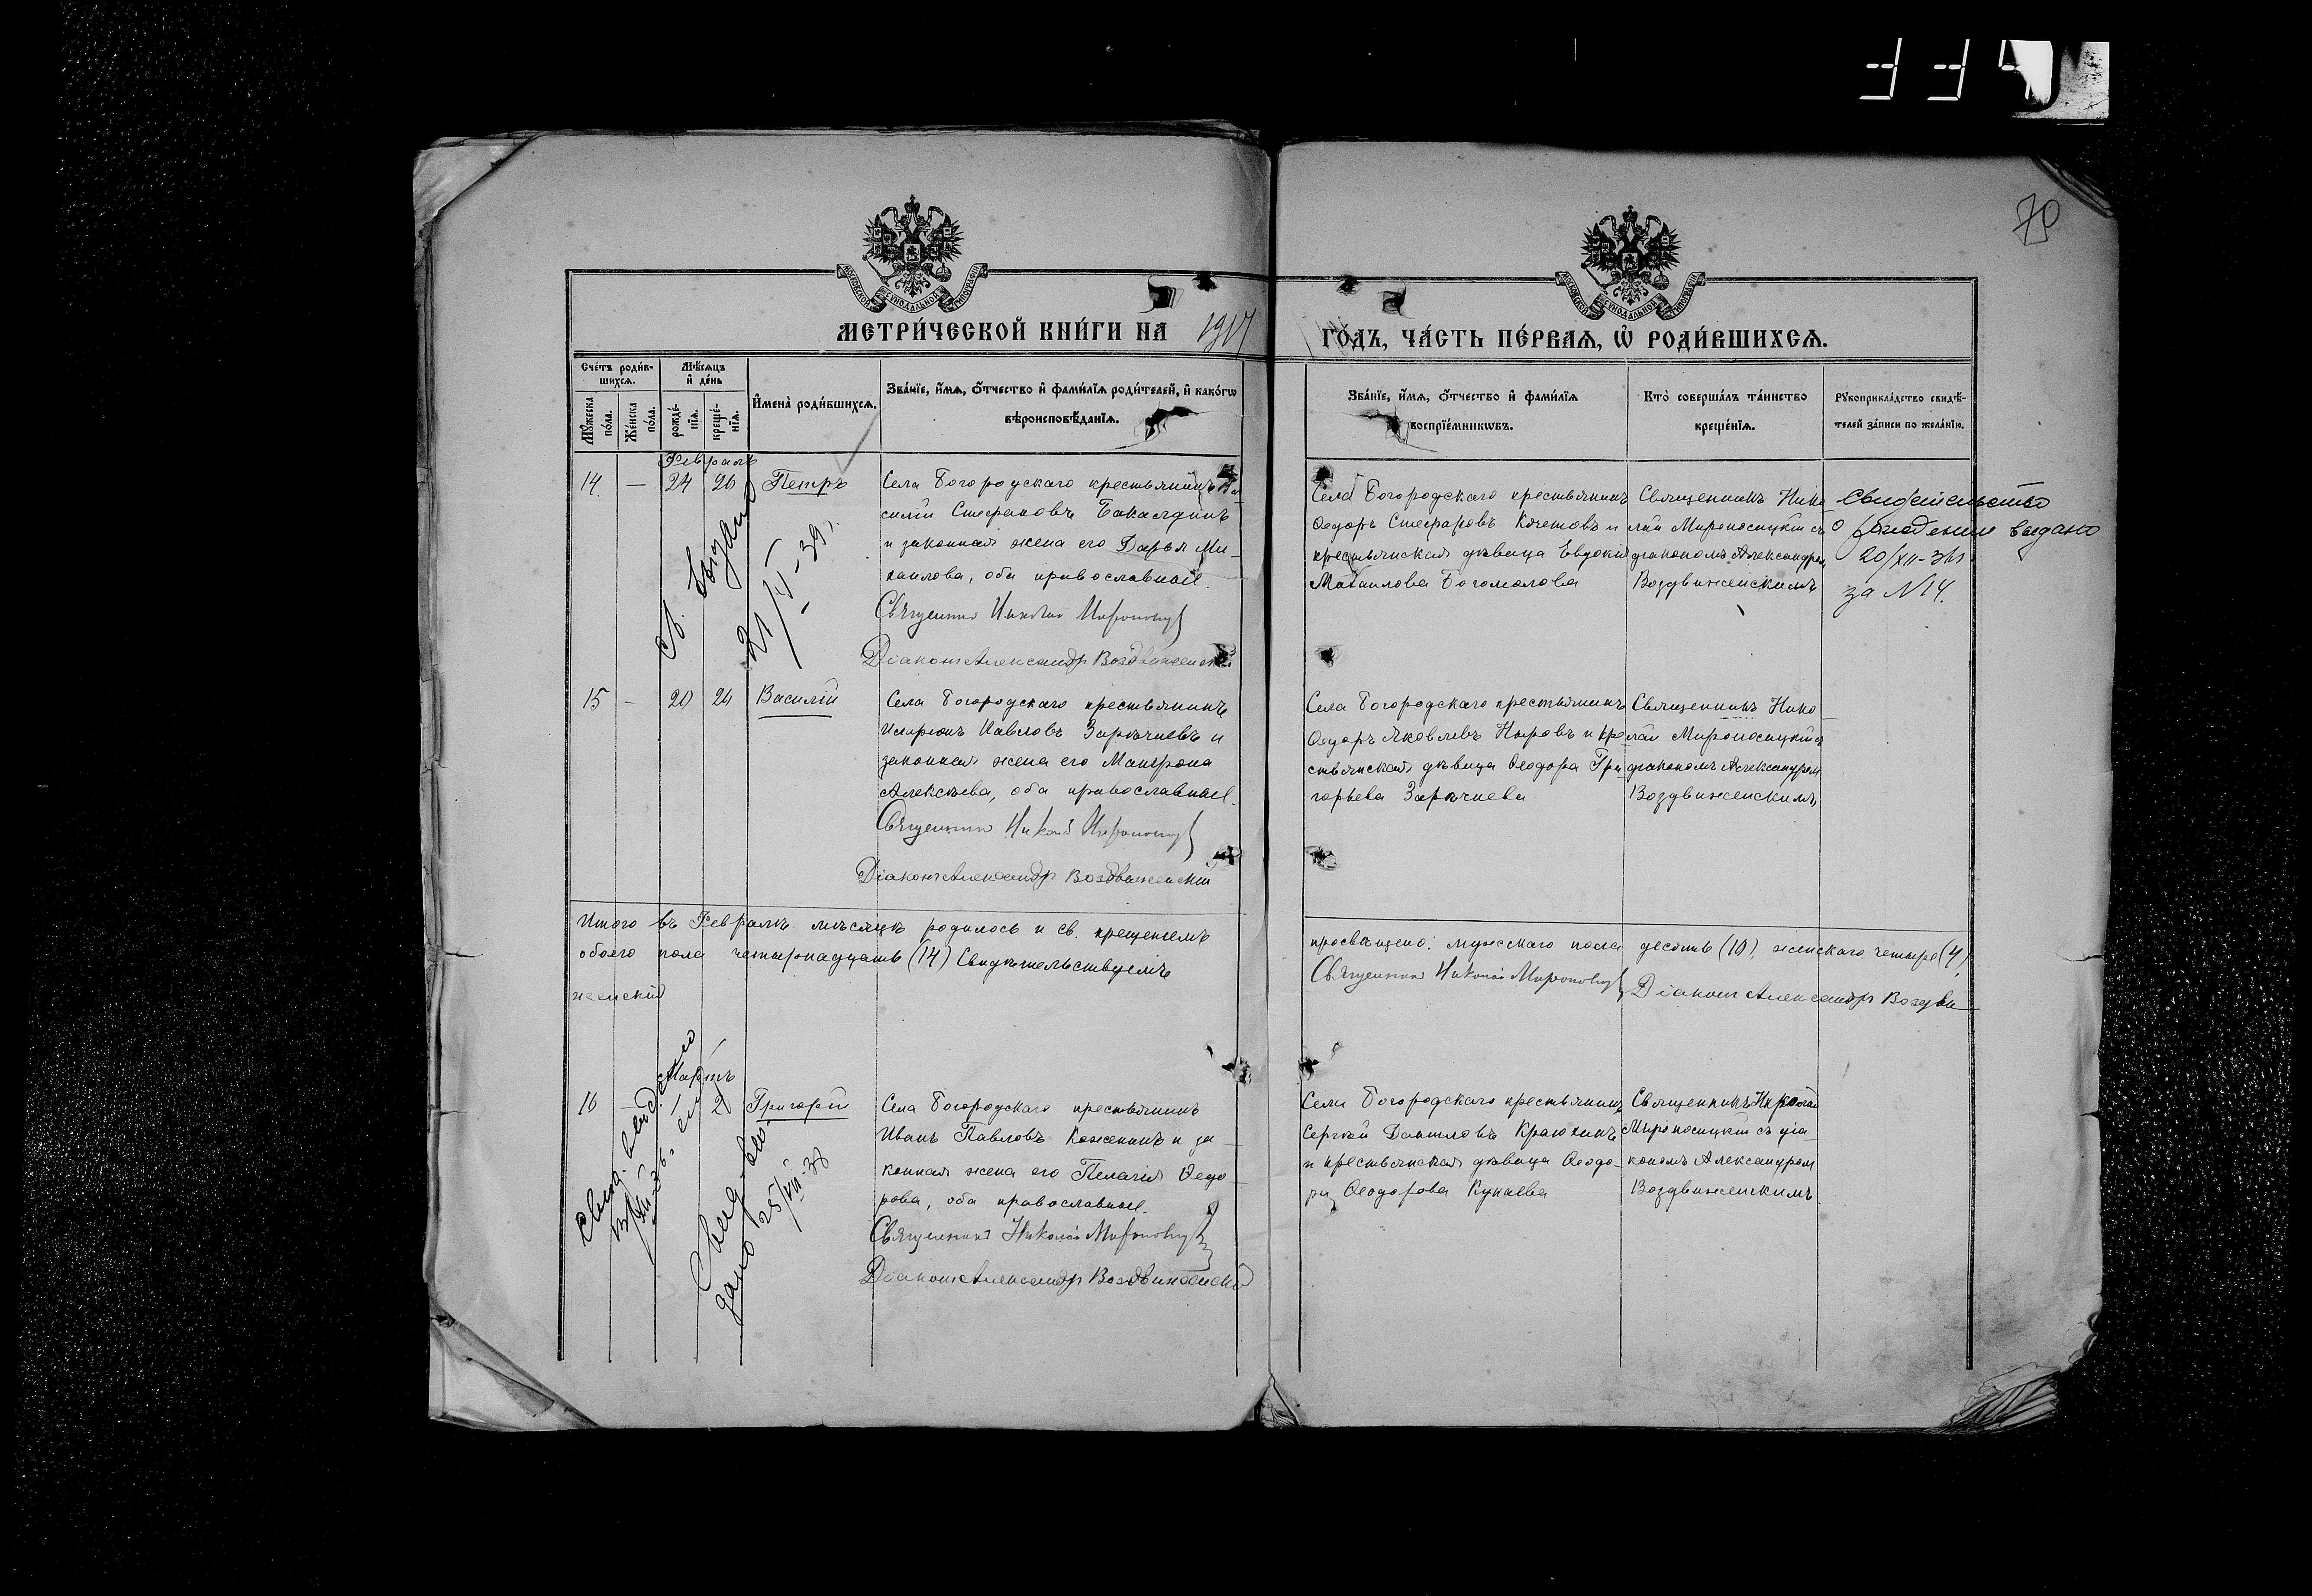 334
70
МОСКОВСКОЙ СѴНОДАЛЬНОЙ ТИПОГРАФІИ
МОСКОВСКОЙ СѴНОДАЛЬНОЙ ТИПОГРАФІИ
МЕТРИ́ЧЕСКОЙ КНИ́ГИ НА 1917
ГО́ДЪ, ЧА́СТЬ ПЕ́РВАѦ, Ѡ҆ РОДИ́ВШИХСѦ.
Сче́тъ роди́в-
шихсѧ.
Мѣ́сѧцъ
и҆ де́нь
Мꙋ́жеска
по́ла.
Же́нска
по́ла.
рожде́-
нїѧ.
креще́-
нїѧ.
И҆мена̀ роди́вшихсѧ.
Зва́нїе, и҆́мѧ, ѻ҆́тчество и҆ фами́лїѧ роди́телей, и҆ како́гѡ
вѣроисповѣ́данїѧ.
Зва́нїе, и҆́мѧ, ѻ҆́тчество и҆ фами́лїѧ
воспрїе́мникѡвъ.
Кто̀ соверша́лъ та́инство
креще́нїѧ.
Рꙋкоприкла́дство свидѣ́-
телей за́писи по жела́нїю.
Февраль
14. — 24 26 Петръ
Села Богородскаго крестьянинъ Ва-
силій Стефановъ Бакалдинъ
и законная жена его Дарья Ми-
хаилова, оба православные.
Священникъ Николай
Діаконъ Александръ Воздвиженскій
св. выдано
21/ -39г.
Села Богородскаго крестьянинъ
Ѳеодоръ Стефановъ Кочетовъ и
крестьянская дѣвица Евдокія
Михаилова Богомолова
Священникъ Нико-
лай Мироносицкій съ
діакономъ Александромъ
Воздвиженскимъ
Свидетельство
о рождении выдано
20/XII-
за №14.
15 — 20 24 Василій
Села Богородскаго крестьянинъ
Иларіонъ Павловъ Зарѣчневъ и
законная жена его Матрона
Алексѣева, оба православные.
Священникъ Николай
Діаконъ Александръ Воздвиженскій
Села Богородскаго крестьянинъ
Ѳеодоръ Яковлевъ и кре-
стьянская дѣвица Ѳеодора Гри-
горьева Зарѣчнева
Священникъ Нико-
лай Мироносицкій съ
діакономъ Александромъ
Воздвиженскимъ
Итого въ Февралѣ мѣсяцѣ родилось и св. крещеніемъ
просвѣщено: мужскаго пола десять (10), женскаго четыре (4),
обоего пола четырнадцать (14) Свидѣтельствуемъ
Священникъ Николай
Діаконъ Александръ Воздви-
женскій
Мартъ
16 — 1 2 Григорій
Села Богородскаго крестьянинъ
Иванъ Павловъ Кожекинъ и за-
конная жена его Пелагія Ѳеодо-
рова, оба православные.
Священникъ Николай
Діаконъ Александръ Воздвиженскій
25/VIII-38
Села Богородскаго крестьянинъ
Сергѣй Даниловъ Краюхинъ
и крестьянская дѣвица Ѳеодо-
ра Ѳеодорова Кунаева
Священникъ Николай
Мироносицкій съ діа-
кономъ Александромъ
Воздвиженскимъ